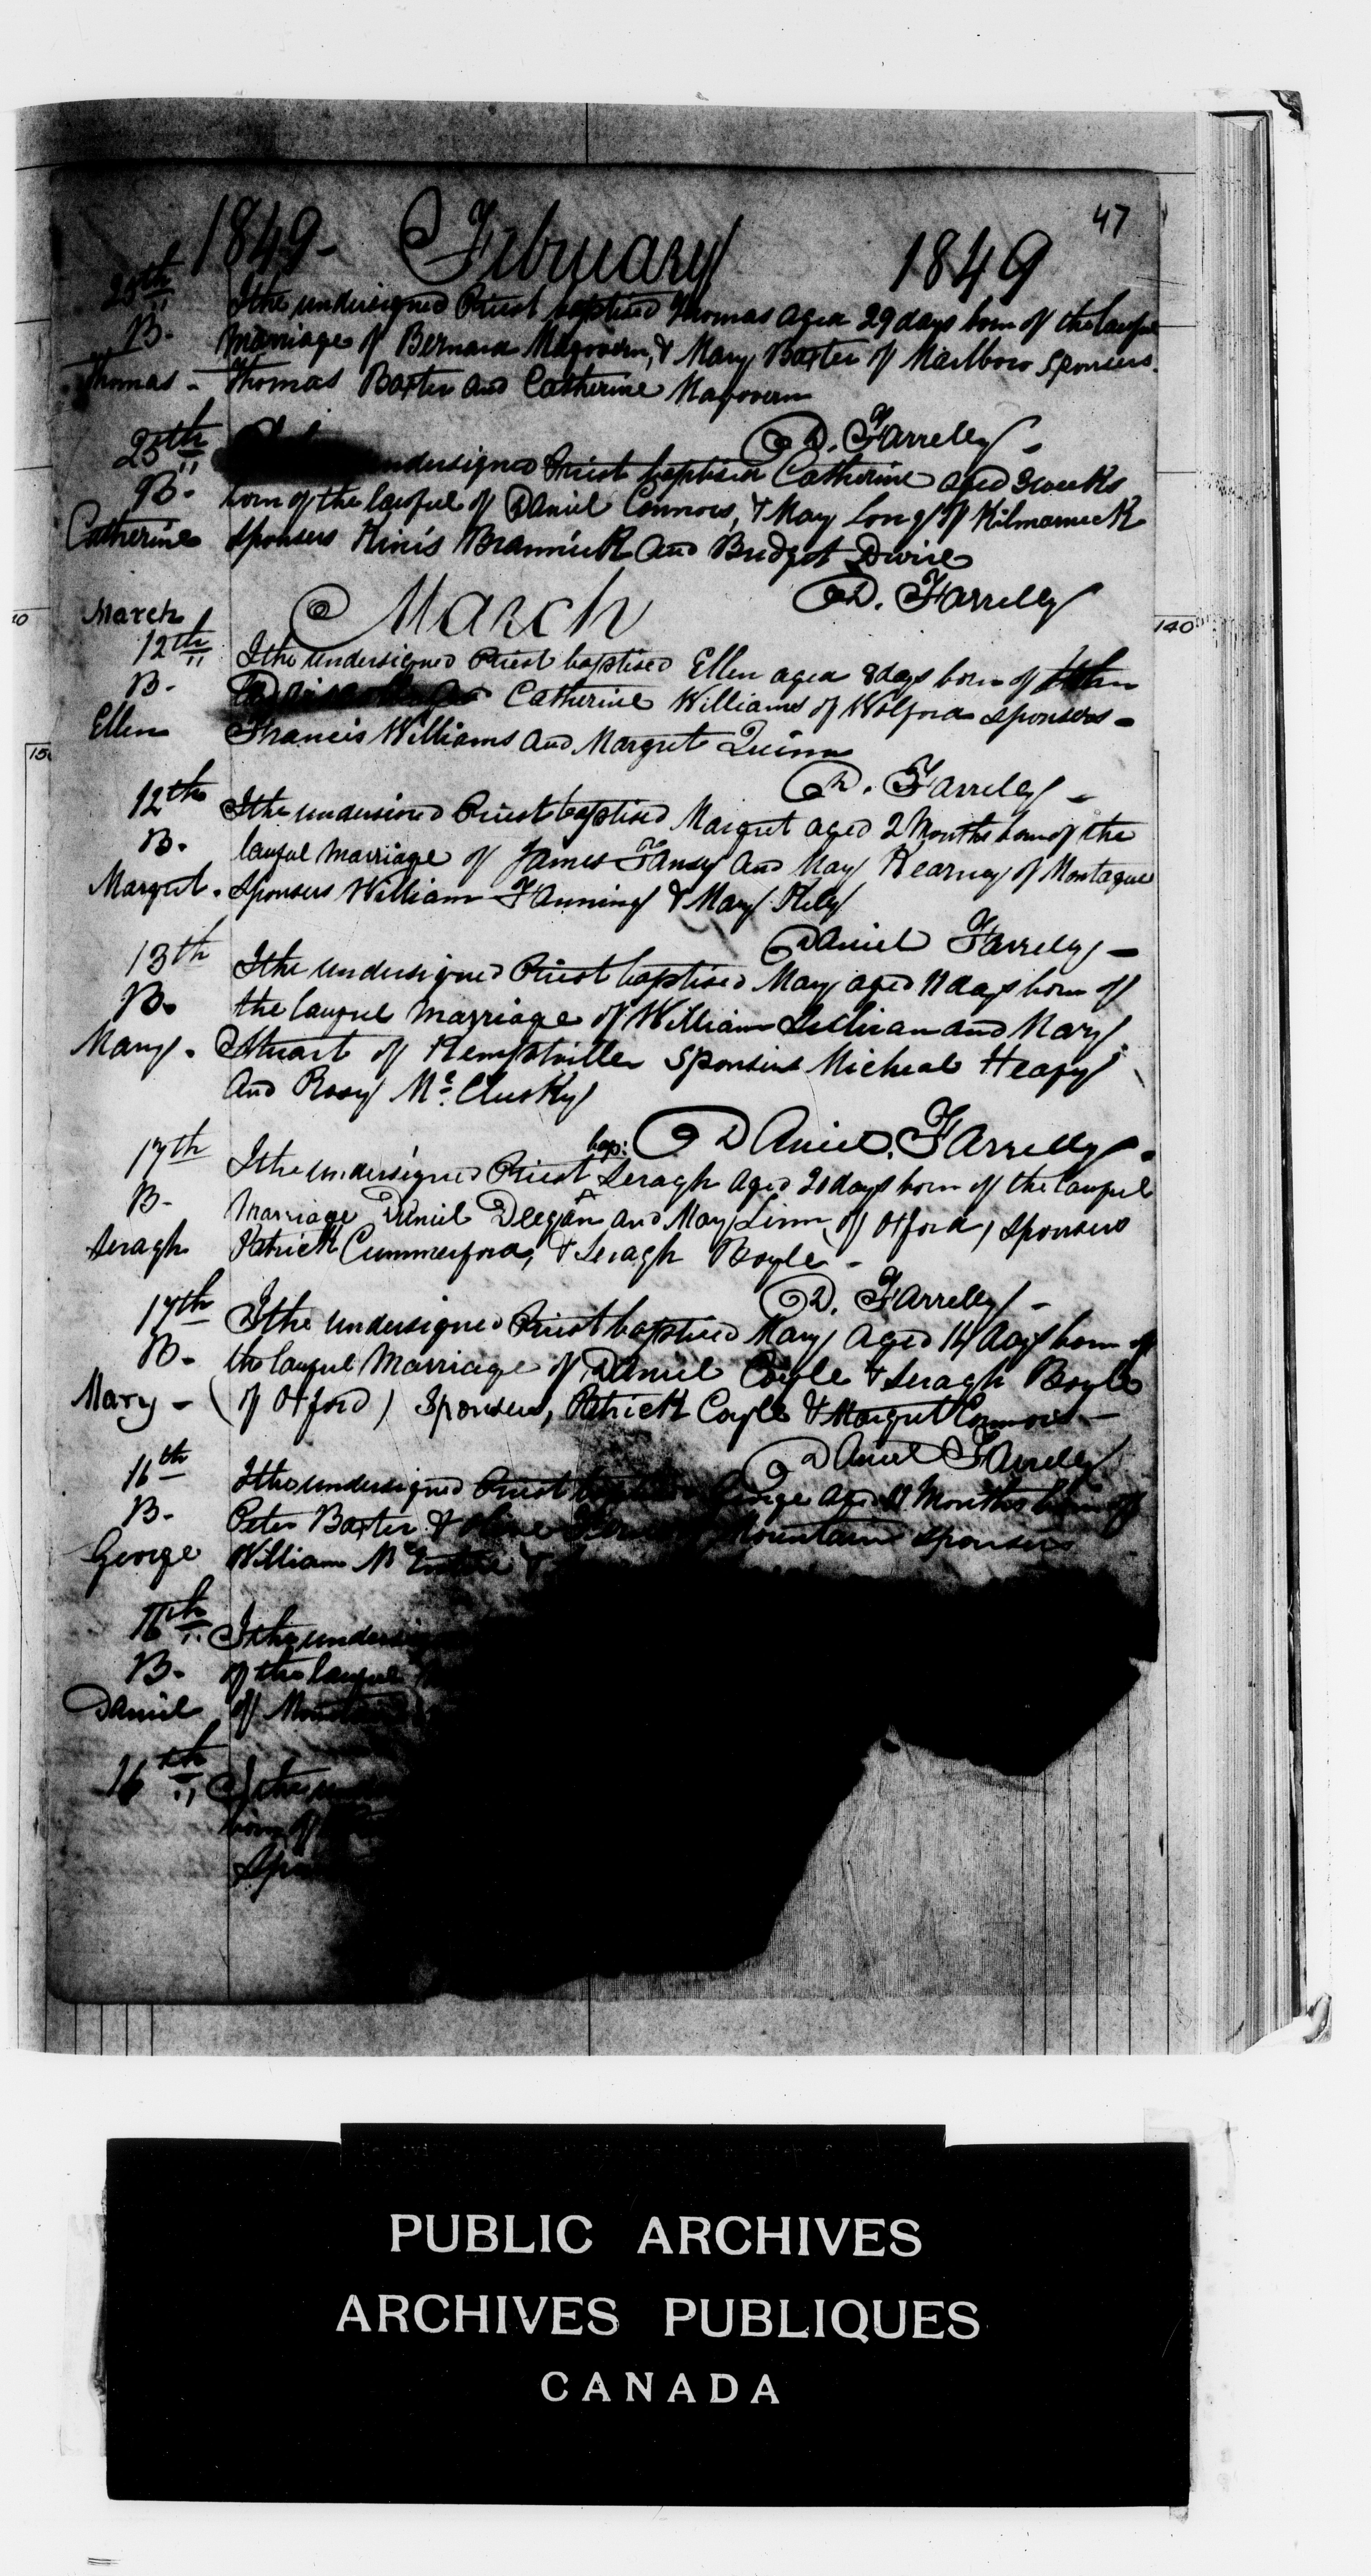 47
1849- February 1849
25th I the undersigned Priest baptised Thomas aged 29 days born of the lawful
B. marriage of Bernard Magovern, & Mary Baxter of Marlboro Sponsers.
Thomas - Thomas Baxter and Catherine Magovern
D. Farrelly -
25th undersigned Priest baptised Catherine aged 3 weeks
B. born of the lawful of Daniel Connors, & Mary Long of Kilmarnock
Catherine Sponsers Brannick and Bridget Divine
D. Farrelly
March March
12th I the undersigned Priest baptised Ellen aged 8 days born of
B. Catherine Williams of Wolford Sponsers -
Ellen Francis Williams and Margret Quinn
D. Farrelly -
12th I the undersined Priest baptised Margret aged 2 Months born of the
B. lawful marriage of James and Mary Kearney of Montague
Margret. Sponsers William Fanning & Mary Rily
Daniel Farrelly -
13th I the undersigned Priest baptised Mary aged 11 days born of
B. the lawful marriage of William Sullivan and Mary
Mary. Stuart of Kemptville Sponsers Micheal Heafy
and Rosy Mc. Clusky
Daniel. Farrelly.
17th I the undersigned Priest bap: Seragh aged 20 days born of the lawful
B. marriage Daniel Deegan and Mary Linn (of Oxford) Sponsers
Seragh Patrick Cummerford, & Seragh Boyle -
D. Farrelly -
17th I the undersigned Priest baptised Mary aged 14 days born of
B. the lawful Marriage of Daniel Coyle & Seragh Boyle
Mary - (of Oxford) Sponsers, Patrick Coyle & Margret Connors -
Daniel Farrelly
16th I the undersigned Priest George aged 11 Months born of
B. Peter Baxter & Mountain Sponsers
George William Mc
16th I the
B. of the lawful
Daniel of
16th I the
born of
10
15
140
PUBLIC ARCHIVES
ARCHIVES PUBLIQUES
CANADA